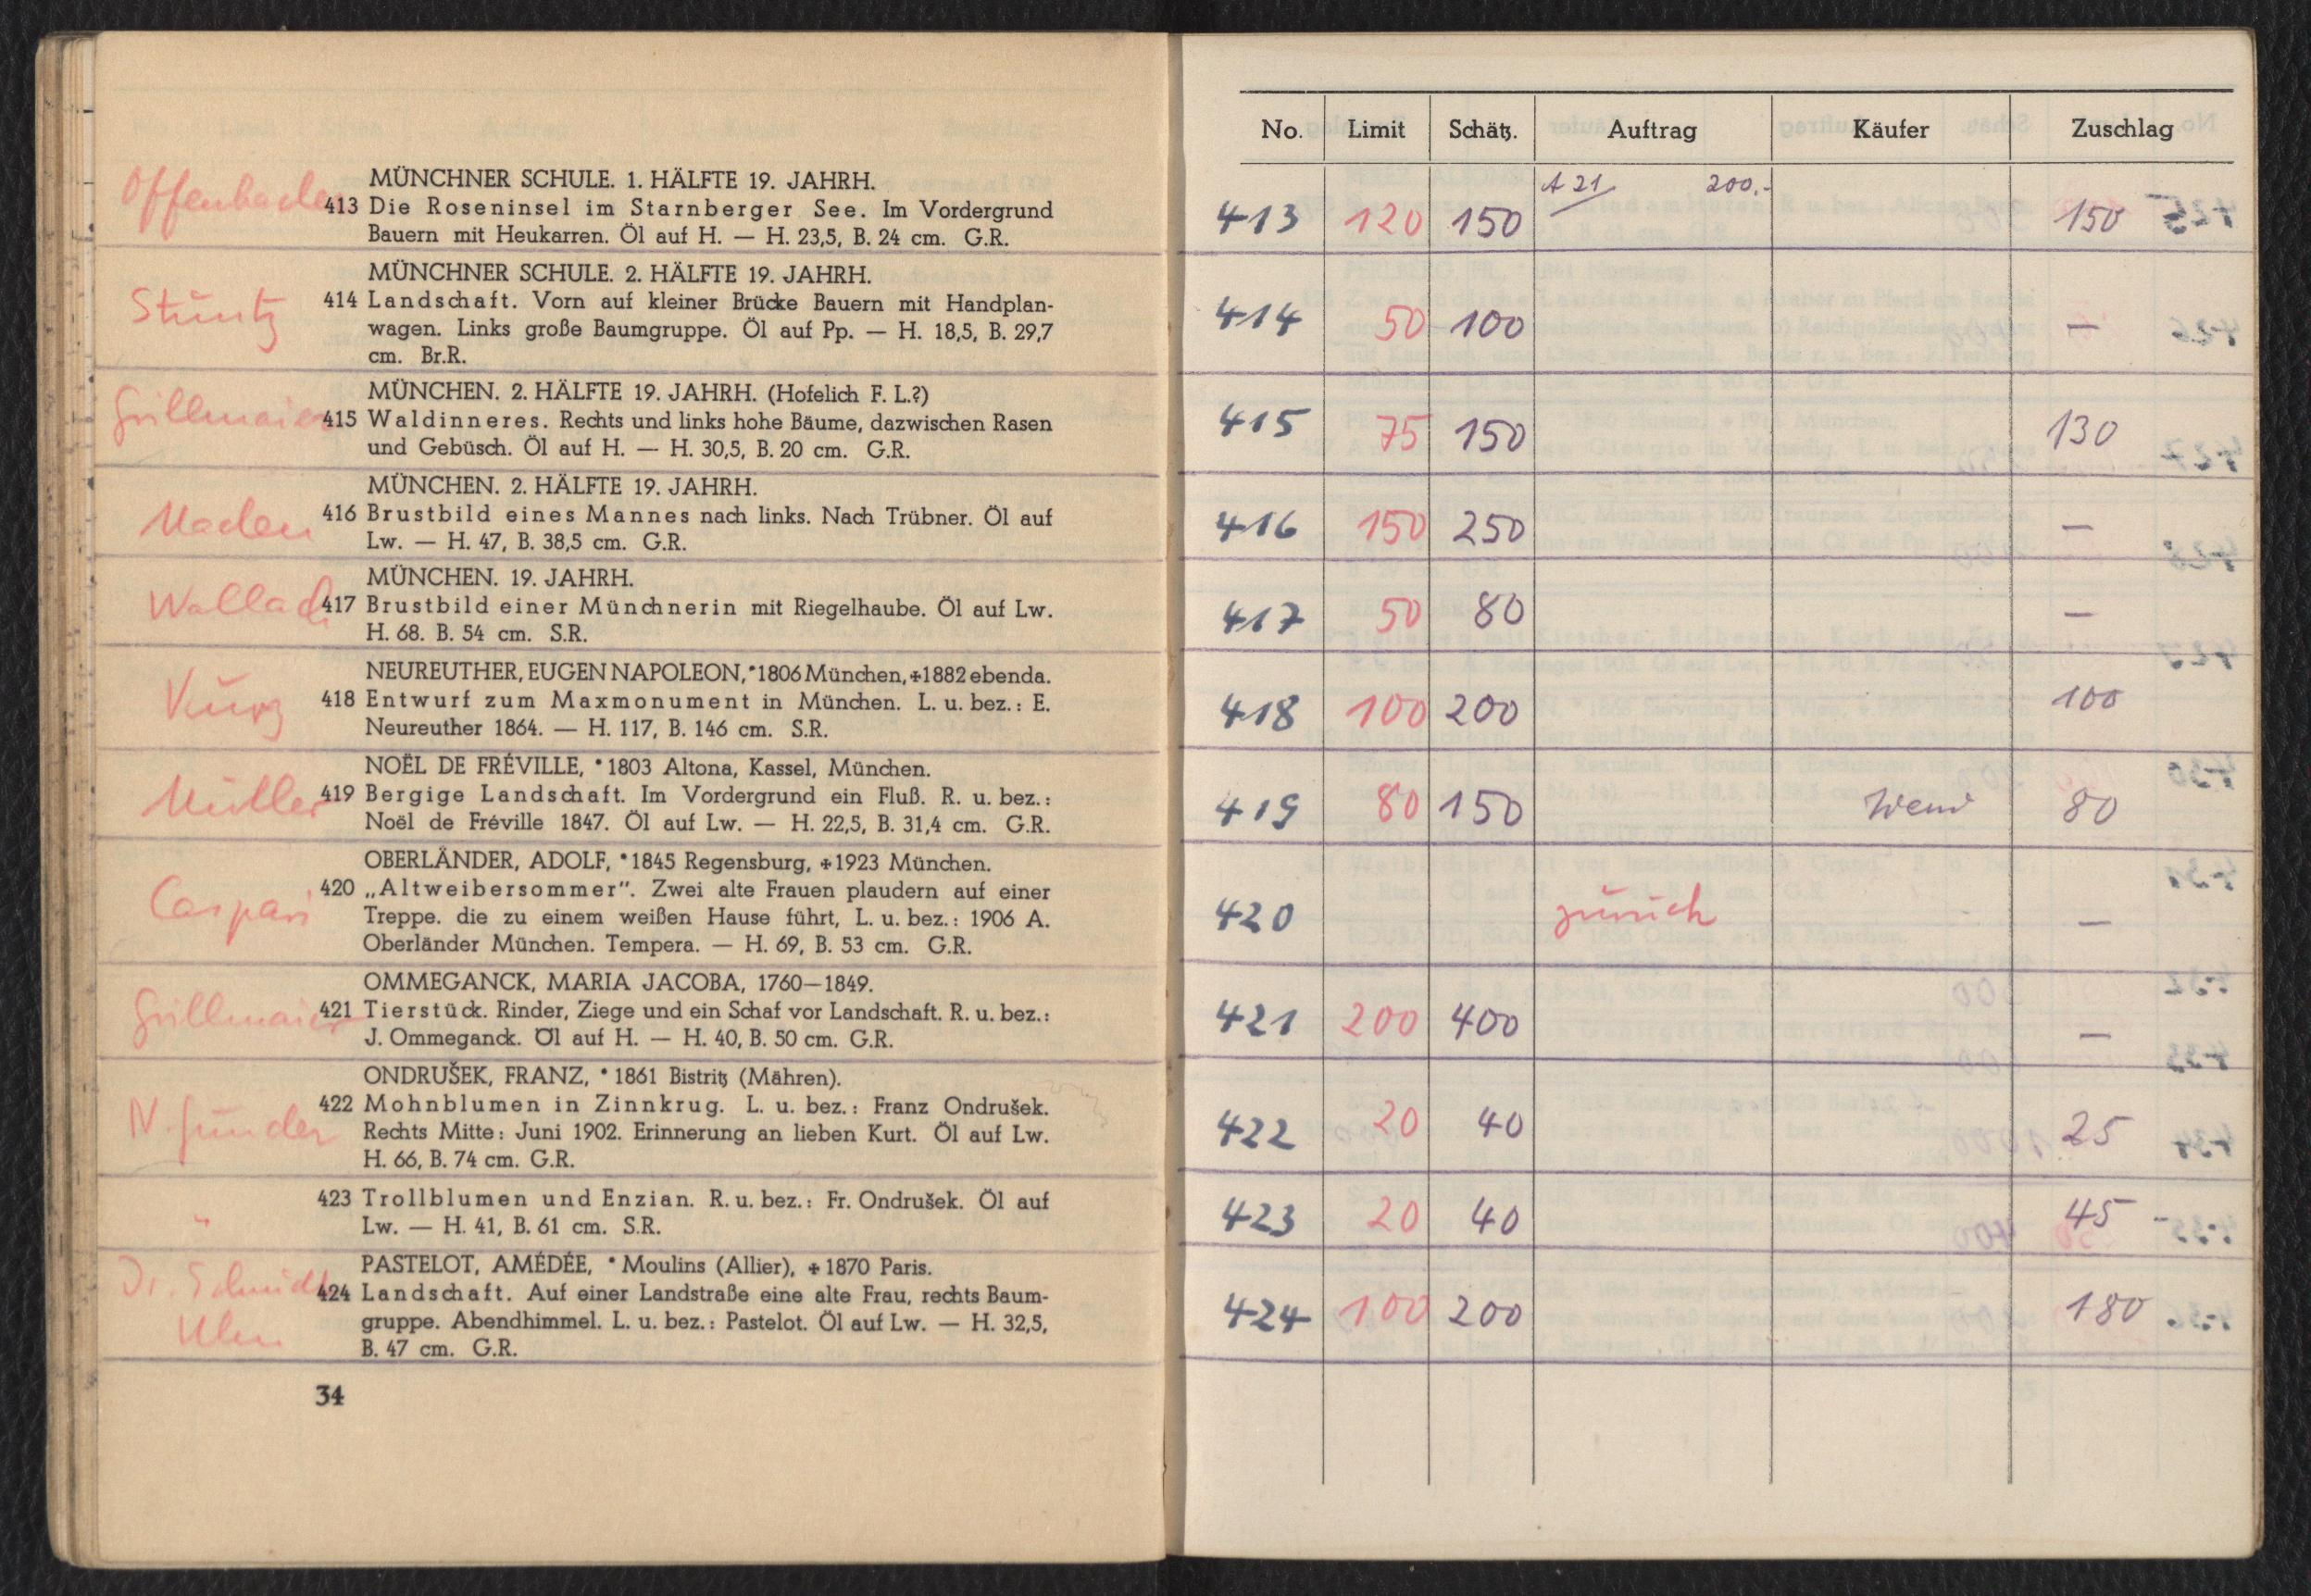 Offenbacher
MÜNCHNER SCHULE. 1. HÄLFTE 19. JAHRH.
413 Die Roseninsel im Starnberger See. Im Vordergrund
Bauern mit Heukarren. Öl auf H. — H. 23,5, B. 24 cm. G.R.
Stüntz
MÜNCHNER SCHULE. 2. HÄLFTE 19. JAHRH.
414 Landschaft. Vorn auf kleiner Brücke Bauern mit Handplan-
wagen. Links große Baumgruppe. Öl auf Pp. — H. 18,5, B. 29,7
cm. Br.R.
Grillmaier
MÜNCHEN. 2. HÄLFTE 19. JAHRH. (Hofelich F. L.?)
415 Waldinneres. Rechts und links hohe Bäume, dazwischen Rasen
und Gebüsch. Öl auf H. — H. 30,5, B. 20 cm. G.R.
MÜNCHEN. 2. HÄLFTE 19. JAHRH.
416 Brustbild eines Mannes nach links. Nach Trübner. Öl auf
Lw. — H. 47, B. 38,5 cm. G.R.
Wallach
MÜNCHEN. 19. JAHRH.
417 Brustbild einer Münchnerin mit Riegelhaube. Öl auf Lw.
H. 68. B. 54 cm. S.R.
Kurz
NEUREUTHER, EUGEN NAPOLEON, *1806 München, +1882 ebenda.
418 Entwurf zum Maxmonument in München. L. u. bez.: E.
Neureuther 1864. — H. 117, B. 146 cm. S.R.
Müller
NOËL DE FRÉVILLE, *1803 Altona, Kassel, München.
419 Bergige Landschaft. Im Vordergrund ein Fluß. R. u. bez.:
Noël de Fréville 1847. Öl auf Lw. — H. 22,5, B. 31,4 cm. G.R.
Caspari
OBERLÄNDER, ADOLF, *1845 Regensburg, +1923 München.
420 „Altweibersommer“. Zwei alte Frauen plaudern auf einer
Treppe. die zu einem weißen Hause führt, L. u. bez.: 1906 A.
Oberländer München. Tempera. — H. 69, B. 53 cm. G.R.
Grillmaier
OMMEGANCK, MARIA JACOBA, 1760—1849.
421 Tierstück. Rinder, Ziege und ein Schaf vor Landschaft. R. u. bez.:
J. Ommeganck. Öl auf H. — H. 40, B. 50 cm. G.R.
ONDRUŠEK, FRANZ, *1861 Bistritz (Mähren).
422 Mohnblumen in Zinnkrug. L. u. bez.: Franz Ondrušek.
Rechts Mitte: Juni 1902. Erinnerung an lieben Kurt. Öl auf Lw.
H. 66, B. 74 cm. G.R.
"
423 Trollblumen und Enzian. R. u. bez.: Fr. Ondrušek. Öl auf
Lw. — H. 41, B. 61 cm. S.R.
Dr. Schmidt
Ulm
PASTELOT, AMÉDÉE, *Moulins (Allier), +1870 Paris.
424 Landschaft. Auf einer Landstraße eine alte Frau, rechts Baum-
gruppe. Abendhimmel. L. u. bez.: Pastelot. Öl auf Lw. — H. 32,5,
B. 47 cm. G.R.
34
No. Limit Schätz. Auftrag Käufer Zuschlag
413 120 150 A 21 200.- 150
414 50 100 —
415 75 150 130
416 150 250 —
417 50 80 —
418 100 200 100
419 80 150 80
420 zurück —
421 200 400 —
422 20 40 25
423 20 40 45
424 100 200 180